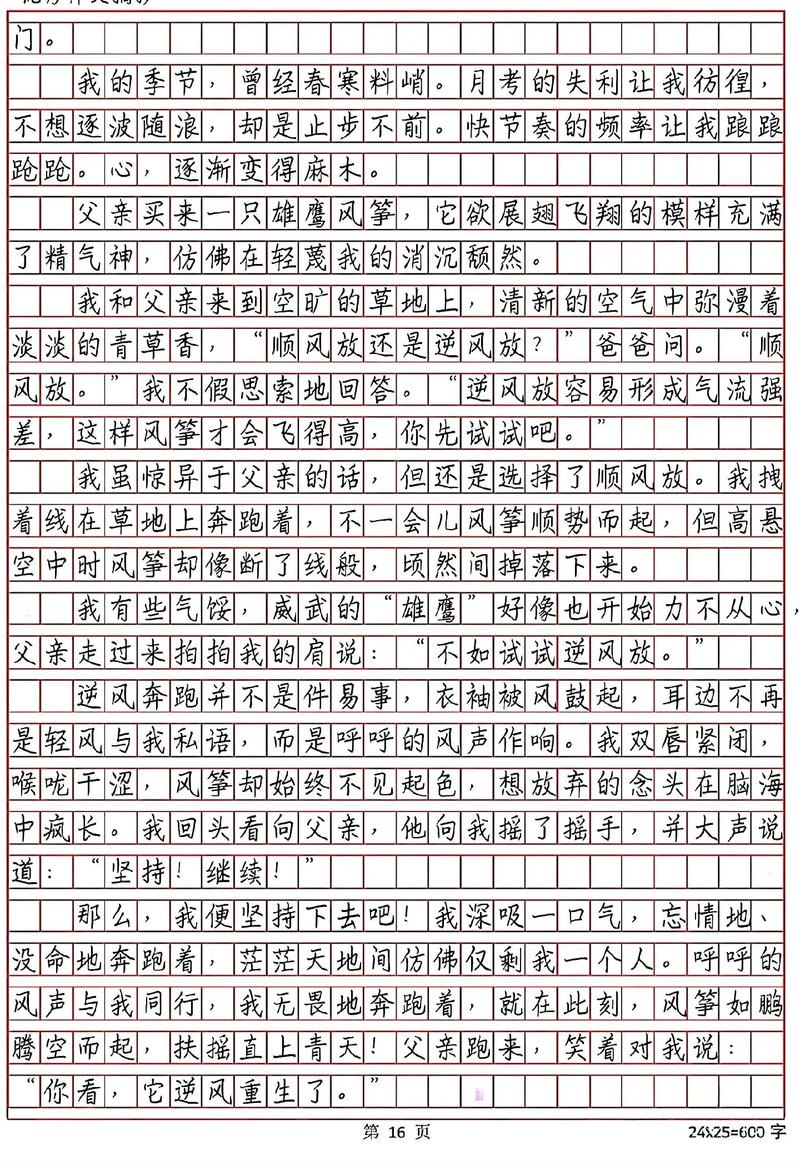 门。
我的季节，曾经春寒料峭。月考的失利让我彷徨，
不想逐波随浪，却是止步不前。快节奏的频率让我踉踉
跄跄。心，逐渐变得麻木。
父亲买来一只雄鹰风筝，它欲展翅飞翔的模样充满
了精气神，仿佛在轻蔑我的消沉颓然。
我和父亲来到空旷的草地上，清新的空气中弥漫着
淡淡的青草香，“顺风放还是逆风放？”爸爸问。“顺
风放。”我不假思索地回答。“逆风放容易形成气流强
差，这样风筝才会飞得高，你先试试吧。”
我虽惊异于父亲的话，但还是选择了顺风放。我拽
着线在草地上奔跑着，不一会儿风筝顺势而起，但高悬
空中时风筝却像断了线般，顷然间掉落下来。
我有些气馁，威武的“雄鹰”好像也开始力不从心，
父亲走过来拍拍我的肩说：“不如试试逆风放。”
逆风奔跑并不是件易事，衣袖被风鼓起，耳边不再
是轻风与我私语，而是呼呼的风声作响。我双唇紧闭，
喉咙干涩，风筝却始终不见起色，想放弃的念头在脑海
中疯长。我回头看向父亲，他向我摇了摇手，并大声说
道：“坚持！继续！”
那么，我便坚持下去吧！我深吸一口气，忘情地、
没命地奔跑着，茫茫天地间仿佛仅剩我一个人。呼呼的
风声与我同行，我无畏地奔跑着，就在此刻，风筝如鹏
腾空而起，扶摇直上青天！父亲跑来，笑着对我说：
“你看，它逆风重生了。”
第 16 页
24x25=600 字